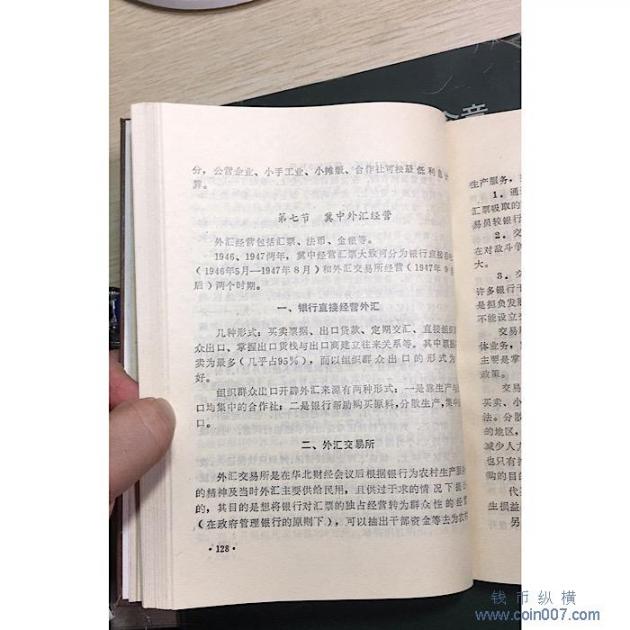 分，公营企业、小手工业、小摊贩、合作社可按最低利息计
算。
第七节 冀中外汇经营
外汇经营包括汇票、法币、金银等。
1946、1947两年，冀中经营汇票大致可分为银行直接经
（1946年5月—1947年8月）和外汇交易所经营（1947年9
后）两个时期。
一、银行直接经营外汇
几种形式：买卖票据、出口货款、定期交汇、直接组织
众出口、掌握出口货栈与出口商建立往来关系等。其中票据
卖为最多（几乎占95%），而以组织群众出口的形式为
好。
组织群众出口开辟外汇来源有两种形式：一是靠生产
口均集中的合作社；二是银行帮助购买原料，分散生产，集中
口。
二、外汇交易所
外汇交易所是在华北财经会议后根据银行为农村生产服
的精神及当时外汇主要供给民用，且供过于求的情况下提
的，其目的是想将银行对汇票的独占经营转为群众性的经
（在政府管理银行的原则下），可以抽出干部资金等去为农村
·128·
生产服务，
1．通
汇票吸取的
易员较银行
2．交
在对敌斗争
大。
3．交
许多银行
是担负发
不能设立
交易所
体业务，
主要是掌
政策。
交易
买卖、小
法。分散
的地区，
减少人力
也只有
购的目的
代
生损益
另
钱币纵横
www.coin007.com